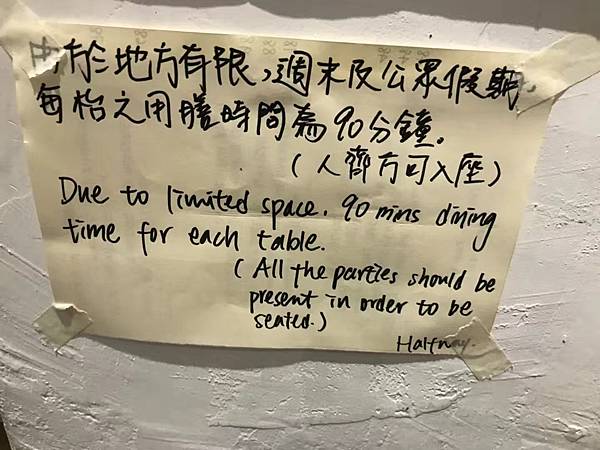 由於地方有限，週末及公眾假期，
每枱之用膳時間為90分鐘。
（人齊方可入座）
Due to limited space. 90 mins dining
time for each table.
(All the parties should be
present in order to be
seated.)
Halfway.